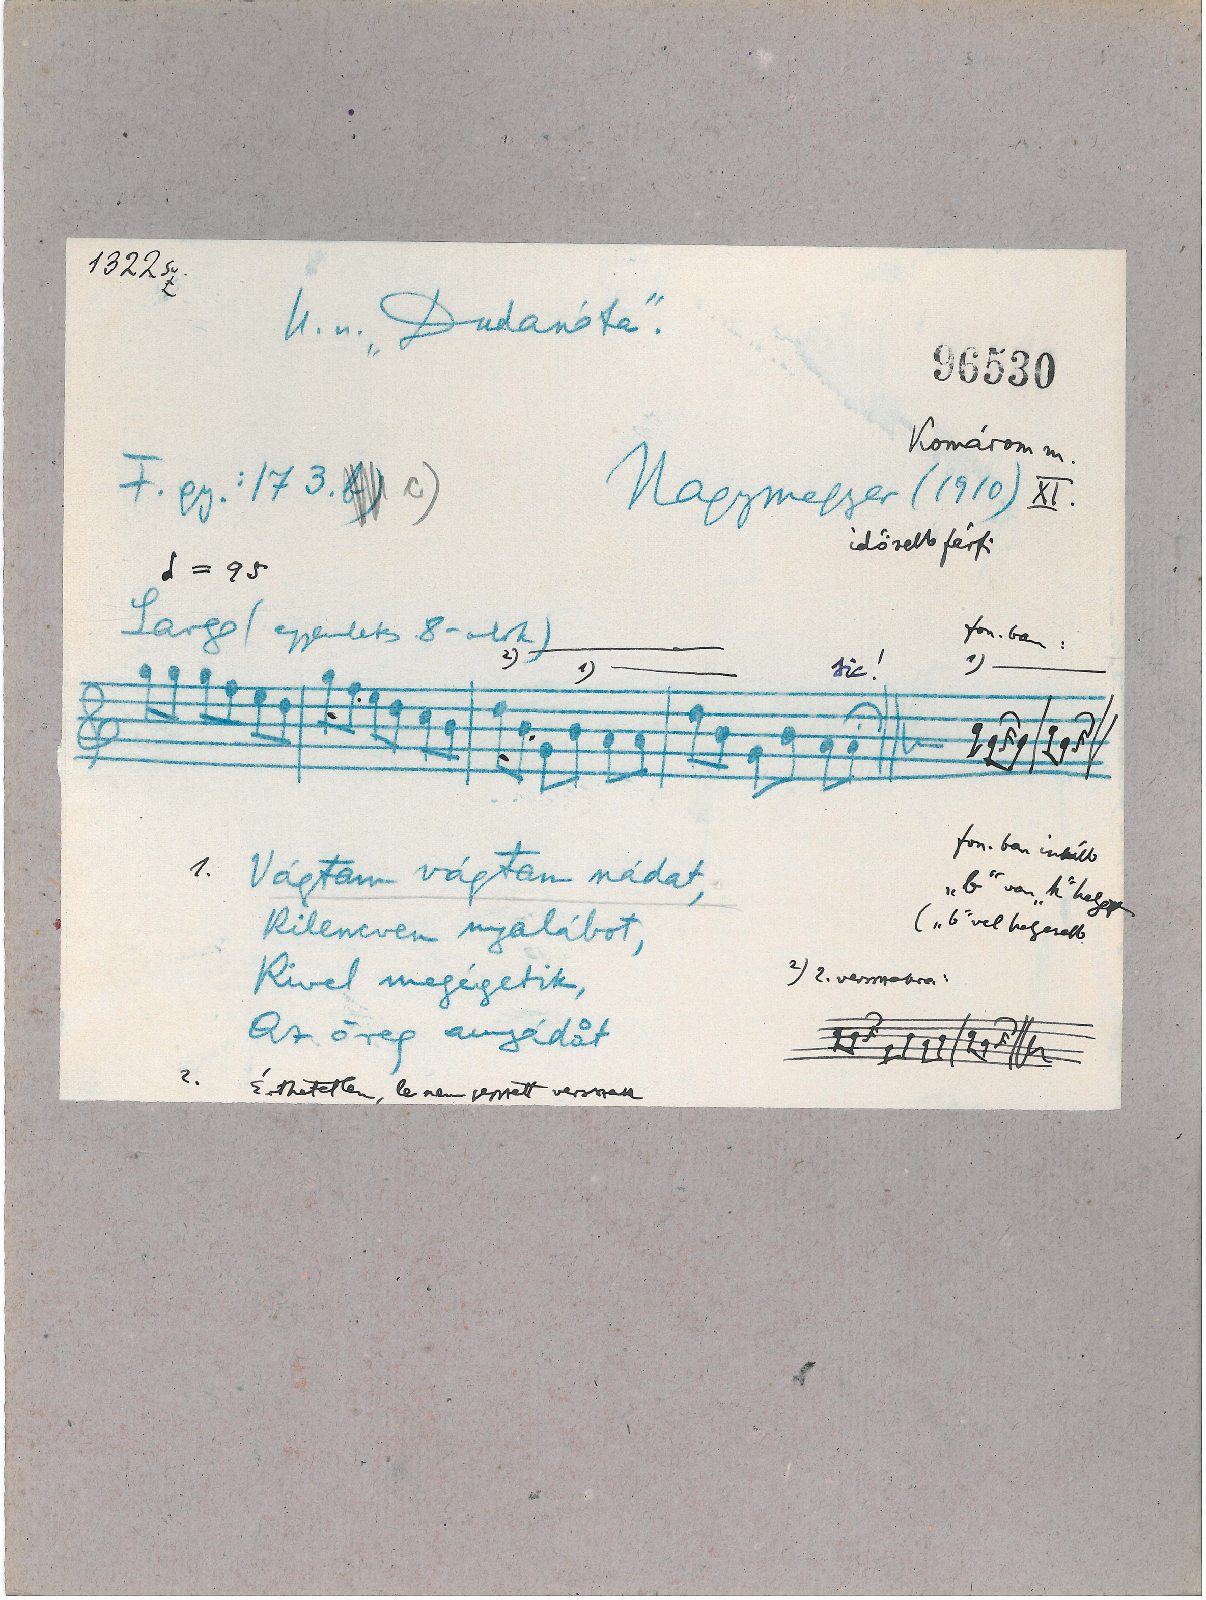 1322
U. n. „Dudanóta".
96530
Komárom m.
F. gy.: 173. c)
Nagymegyer (1910) XI.
idősebb férfi
= 95
Largo (egyenletes 8-adok)
2)
1)
sic!
fon.ban:
1)
1. Vágtam vágtam nádat,
Kilencven nyalábot,
Kivel megégetik,
Az öreg anyádåt
fon.ban inkább
„b" van „h" helyett
(„b"vel helyesebb
2) 2. versszakra:
2. Érthetetlen, le nem jegyzett versszak